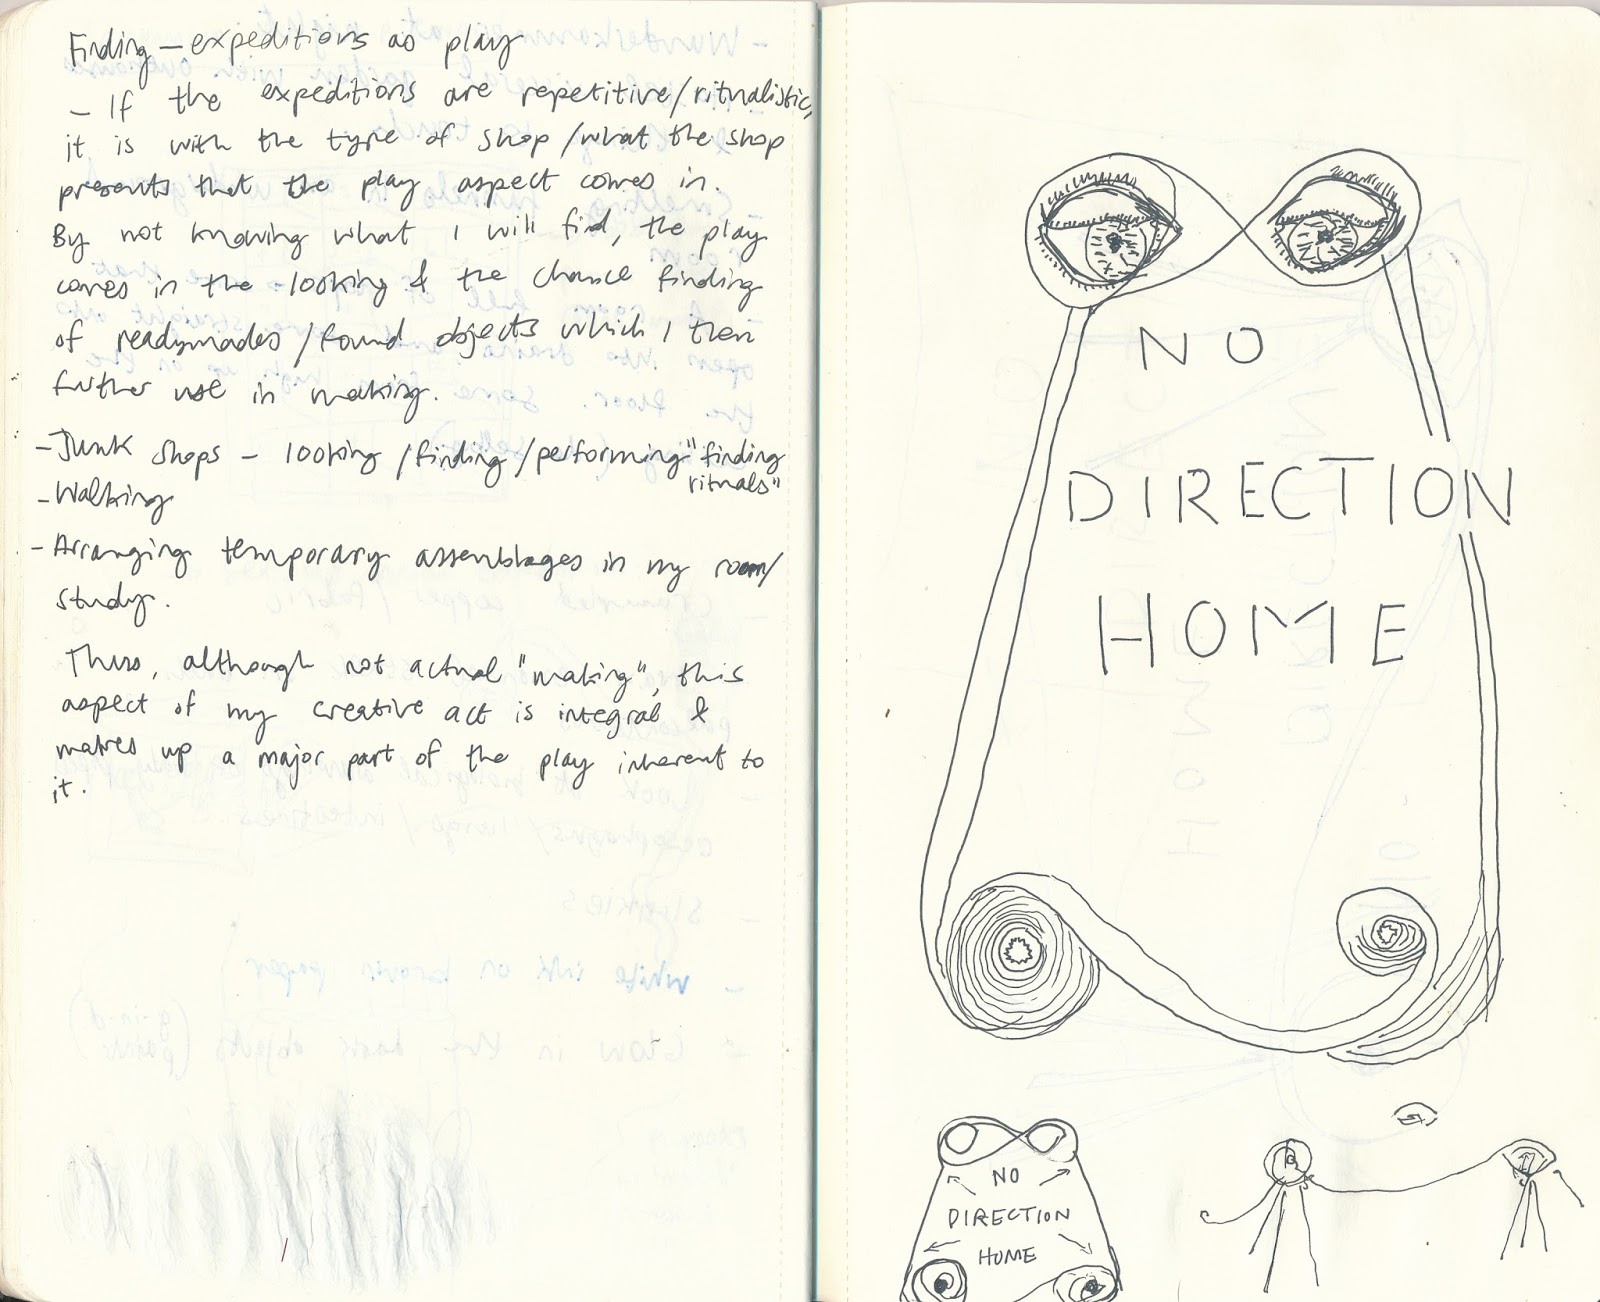 Finding – expeditions as play
– If the expeditions are repetitive/ritualistic,
it is with the type of shop/what the shop
presents that the play aspect comes in.
By not knowing what I will find, the play
comes in the looking & the chance finding
of readymades/found objects which I then
further use in making.
– Junk shops – looking/finding/performing "finding
rituals"
– Walking
– Arranging temporary assemblages in my room/
study.
Thus, although not actual "making", this
aspect of my creative act is integral &
makes up a major part of the play inherent to
it.
NO
DIRECTION
HOME
NO
DIRECTION
HOME